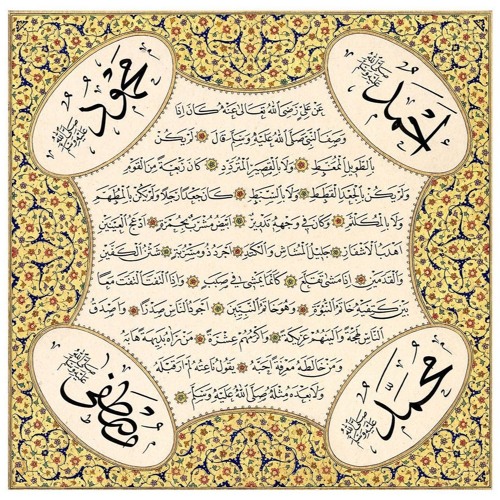 أحمد صلى الله عليه وسلم
محمود صلى الله عليه وسلم
عن علي رضي الله تعالى عنه كان إذا
وصف النبي صلى الله عليه وسلم قال لم يكن
بالطويل الممغط ولا بالقصير المتردد كان ربعة من القوم
ولم يكن بالجعد القطط ولا بالسبط كان جعدا رجلا ولم يكن بالمطهم
ولا بالمكلثم وكان في وجهه تدوير أبيض مشرب بحمرة أدعج العينين
أهدب الأشفار جليل المشاش والكتد أجرد ذو مسربة شثن الكفين
والقدمين إذا مشى تقلع كأنما يمشي في صبب وإذا التفت التفت معا
بين كتفيه خاتم النبوة وهو خاتم النبيين أجود الناس صدرا وأصدق
الناس لهجة وألينهم عريكة وأكرمهم عشرة من رآه بديهة هابه
ومن خالطه معرفة أحبه يقول ناعته لم أر قبله
ولا بعده مثله صلى الله عليه وسلم
محمد صلى الله عليه وسلم
مصطفى صلى الله عليه وسلم